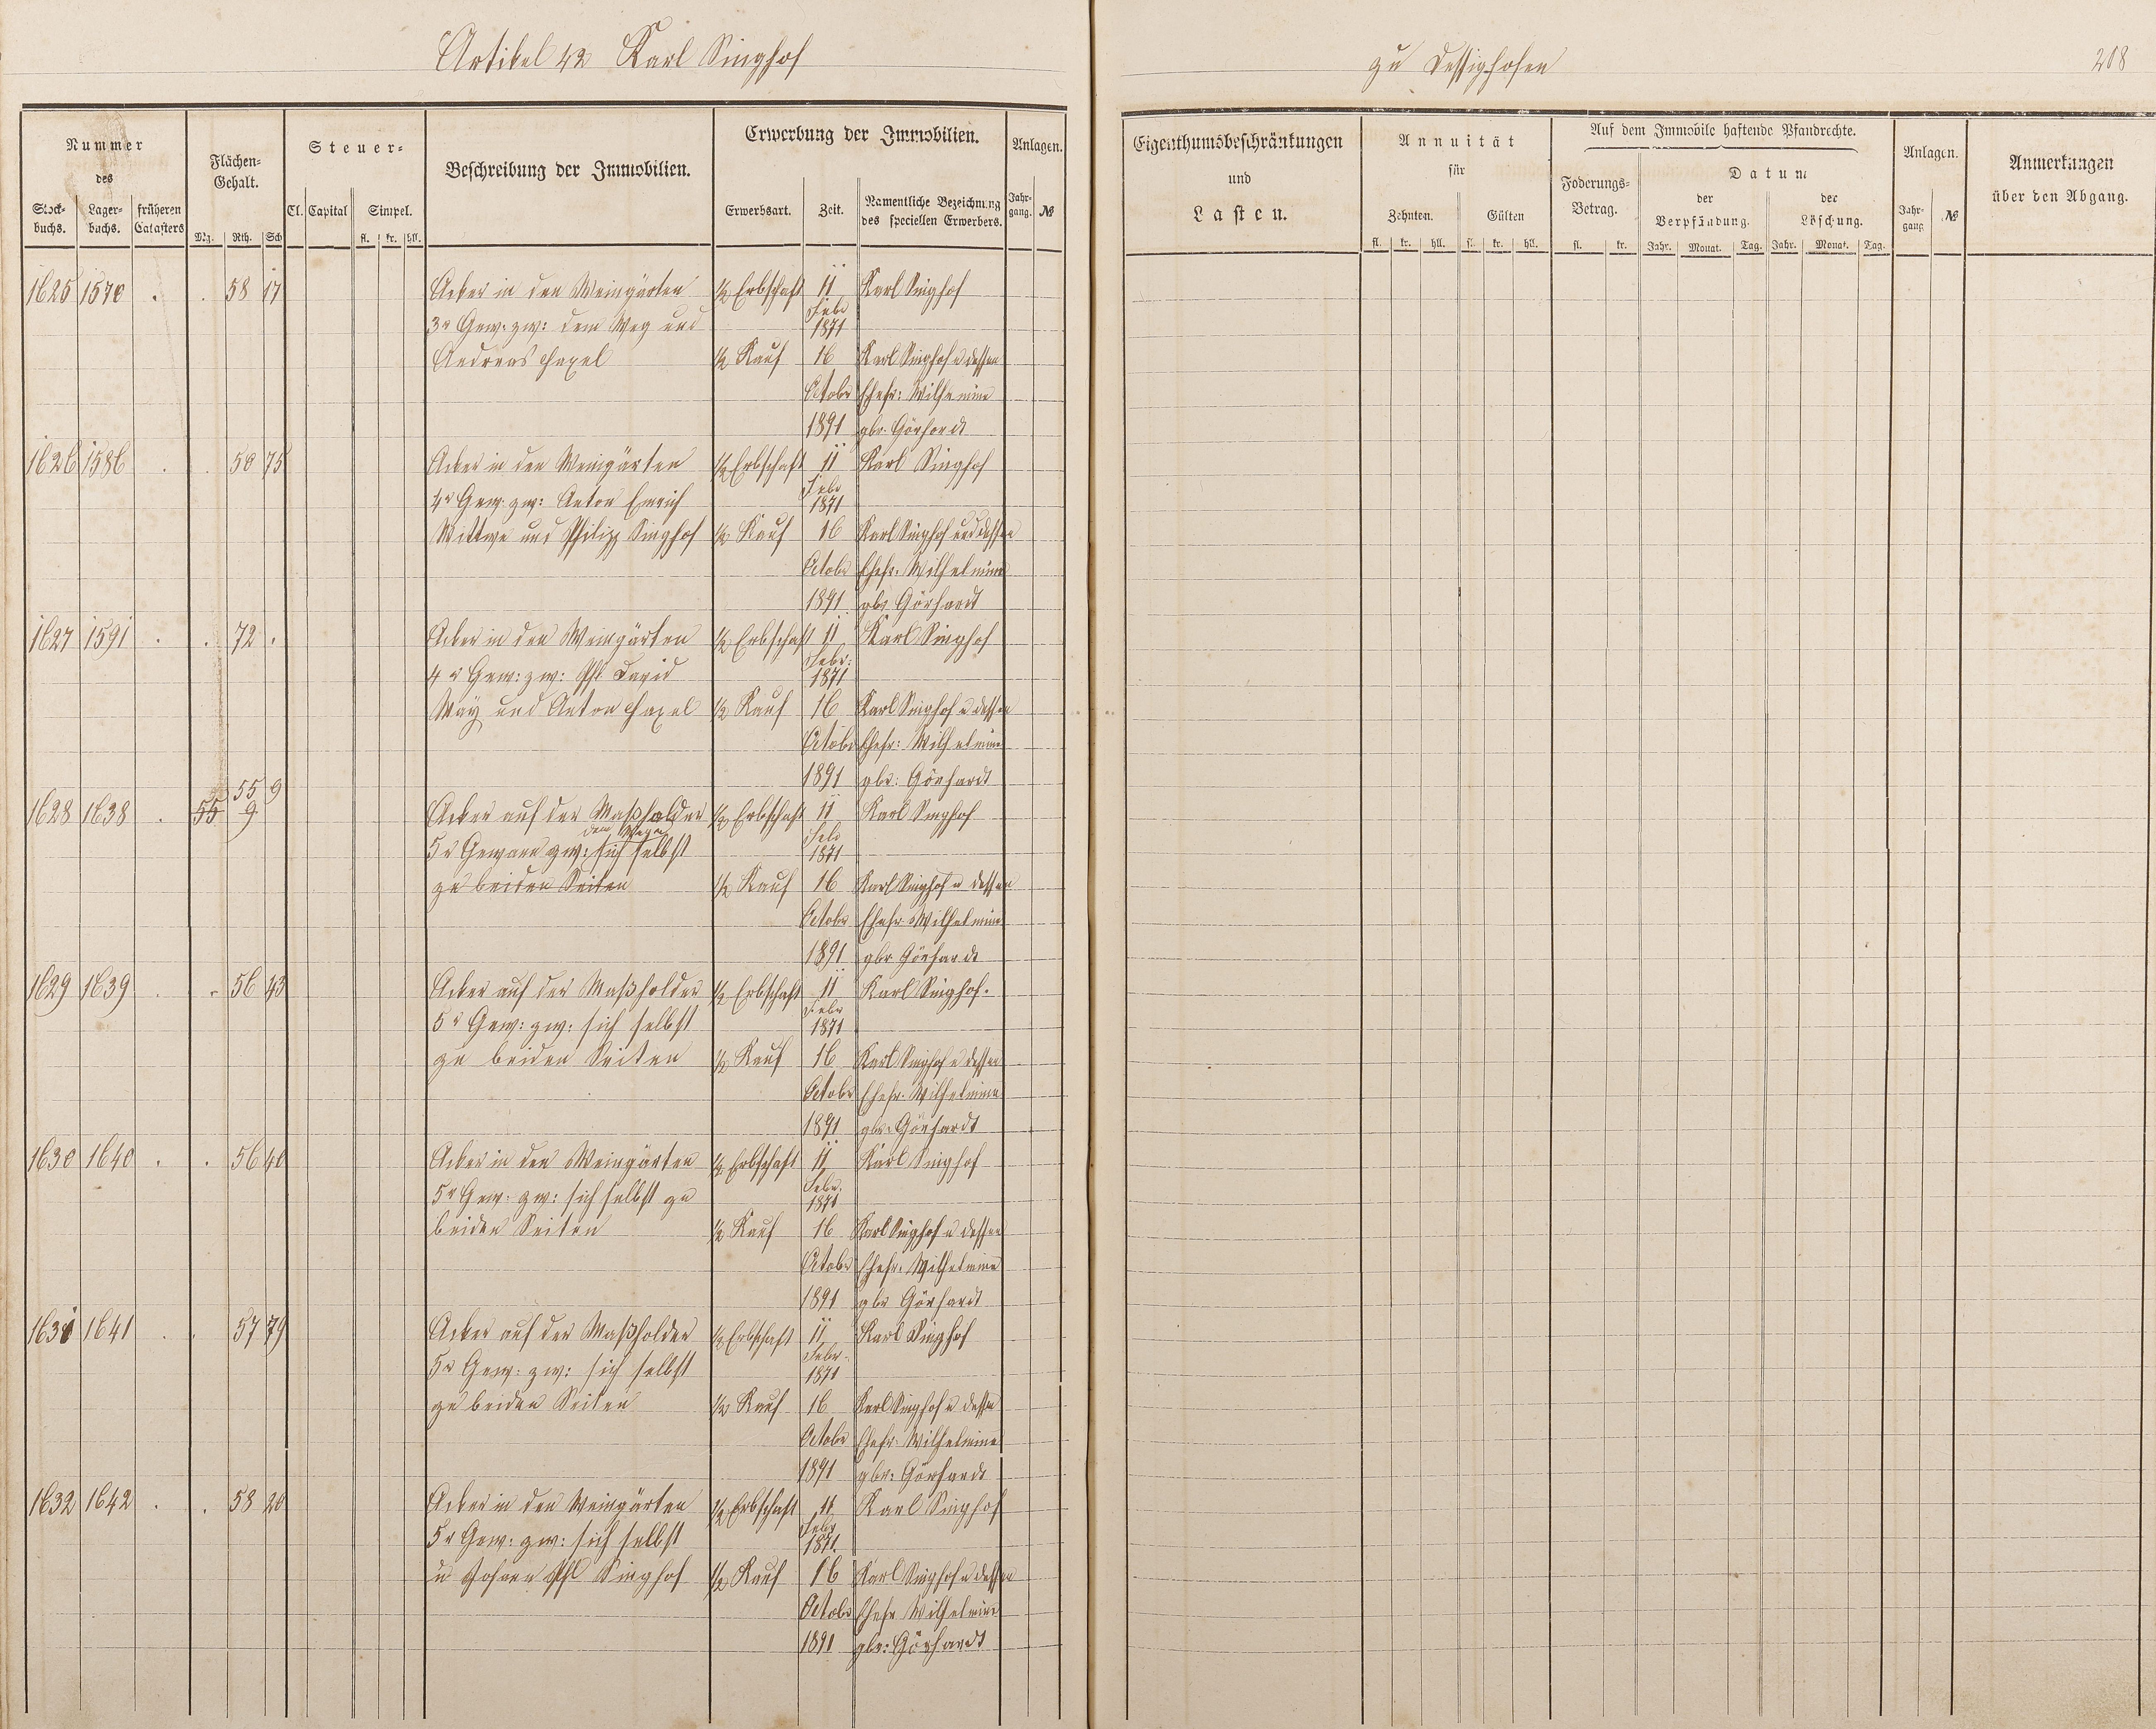 Artikel 42 Karl Singhof
zu Dessighofen
208
Nummer des
Stock-buchs. Lager-buchs. früheren Catasters
Flächen-Gehalt.
Mg. Rth. Sch
Steuer-
Cl. Capital Simpel.
fl. kr. hll.
Beschreibung der Immobilien.
Erwerbung der Immobilien.
Erwerbsart. Zeit. Namentliche Bezeichnung des speciellen Erwerbers.
Anlagen.
Jahr-gang. №
Eigenthumsbeschränkungen
und
Lasten.
Annuität
für
Zehnten. Gülten
fl. kr. hll. fl. kr. hll.
Auf dem Immobile haftende Pfandrechte.
Foderungs-Betrag.
fl. kr.
Datum
der Verpfändung. der Löschung.
Jahr. Monat. Tag. Jahr. Monat. Tag.
Anlagen.
Jahr-gang №
Anmerkungen
über den Abgang.
1625 1570 . . 58 17 Acker in den Weingärten ½ Erbschaft 11 Karl Singhof
3r Gew: zw: dem Weg und Febr 1871
Andreas Haxel ½ Kauf 16 Karl Singhof u dessen
Octobr Ehefr: Wilhemine
1891 gbr. Görhardt
1626 1586 . . 50 75 Acker in den Weingärten ½ Erbschaft 11 Karl Singhof
4r Gew: zw: Anton Emrich Febr 1871
Wittwe und Philipp Singhof ½ Kauf 16 Karl Singhof und dessen
Octobr Ehefr. Wilhelmine
1891 gbr Görhardt
1627 1591 . . 72 . Acker in den Weingärten ½ Erbschaft 11 Karl Singhof
4r Gew: zw: Phl David Febr: 1871
May und Anton Haxel ½ Kauf 16 Karl Singhof u dessen
Octobr Ehefr: Wilhelmine
1891 gbr: Görhardt
55 9
1628 1638 . 55 9 Acker auf der Maßholder ½ Erbschaft 11 Karl Singhof
dem Wege
5r Gewann zw: sich selbst Febr 1871
zu beiden Seiten ½ Kauf 16 Karl Singhof u dessen
Octobr Ehefr. Wilhelmine
1891 gbr Görhardt
1629 1639 . . 56 43 Acker auf der Maßholder ½ Erbschaft 11 Karl Singhof.
5r Gew: zw: sich selbst Febr 1871
zu beiden Seiten ½ Kauf 16 Karl Singhof u dessen
Octobr Ehefr. Wilhelmine
1891 gbr. Görhardt
1630 1640 . . 56 40 Acker in den Weingärten ½ Erbschaft 11 Karl Singhof
5r Gew: zw: sich selbst zu Febr. 1871
beiden Seiten ½ Kauf 16 Karl Singhof u dessen
Octobr Ehefr. Wilhelmine
1891 gbr Görhardt
1631 1641 . . 57 79 Acker auf der Maßholder ½ Erbschaft 11 Karl Singhof
5r Gew: zw: sich selbst Febr. 1871
zu beiden Seiten ½ Kauf 16 Karl Singhof u dessen
Octobr Ehefr. Wilhelmine
1891 gbr: Görhardt
1632 1642 . . 58 20 Acker in den Weingärten ½ Erbschaft 11 Karl Singhof
5r Gew: zw: sich selbst Febr 1871.
u Johann Phl Singhof ½ Kauf 16 Karl Singhof u dessen
Octobr Ehefr Wilhelmine
1891 gbr: Görhardt